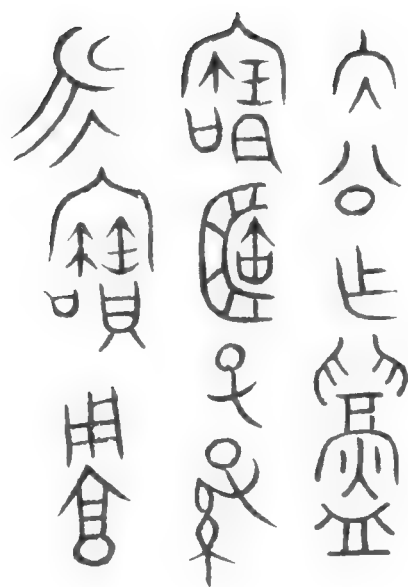 内公乍鑄
寶𠤳子孫
永寶用享